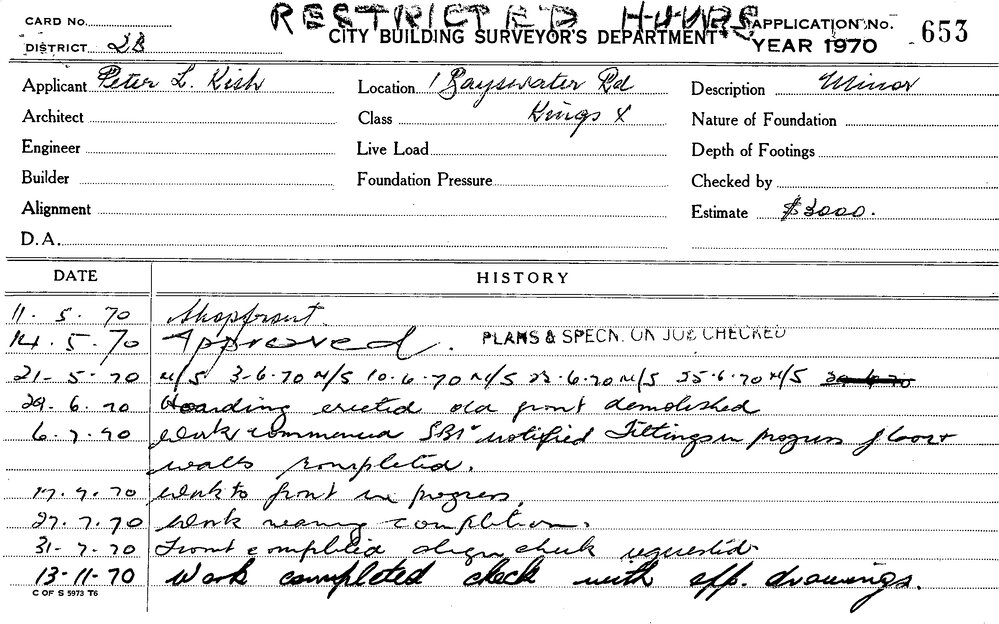 RESTRICTED HOURS
CARD No.
CITY BUILDING SURVEYOR'S DEPARTMENT
APPLICATION No. 653
DISTRICT 2B
YEAR 1970
Applicant Peter L. Kish
Location 1 Bayswater Rd
Description Minor
Architect
Class Kings X
Nature of Foundation
Engineer
Live Load
Depth of Footings
Builder
Foundation Pressure
Checked by
Alignment
Estimate $3000.
D.A.
DATE
HISTORY
11. 5. 70 Shopfront.
14. 5. 70 Approved. PLANS & SPECN. ON JOB CHECKED
21- 5- 70 N/S 3-6-70 N/S 10.6.70 N/S 23.6.70 N/S 25.6.70 N/S
29. 6. 70 Hoarding erected old front demolished
6. 7. 70 Work commenced notified Fittings in progress floor +
walls completed.
17. 7. 70 Work to front in progress.
27. 7. 70 Work nearing completion.
31- 7. 70 Front completed align check requested
13-11-70 Work completed check with app. drawings.
C OF S 5973 T6